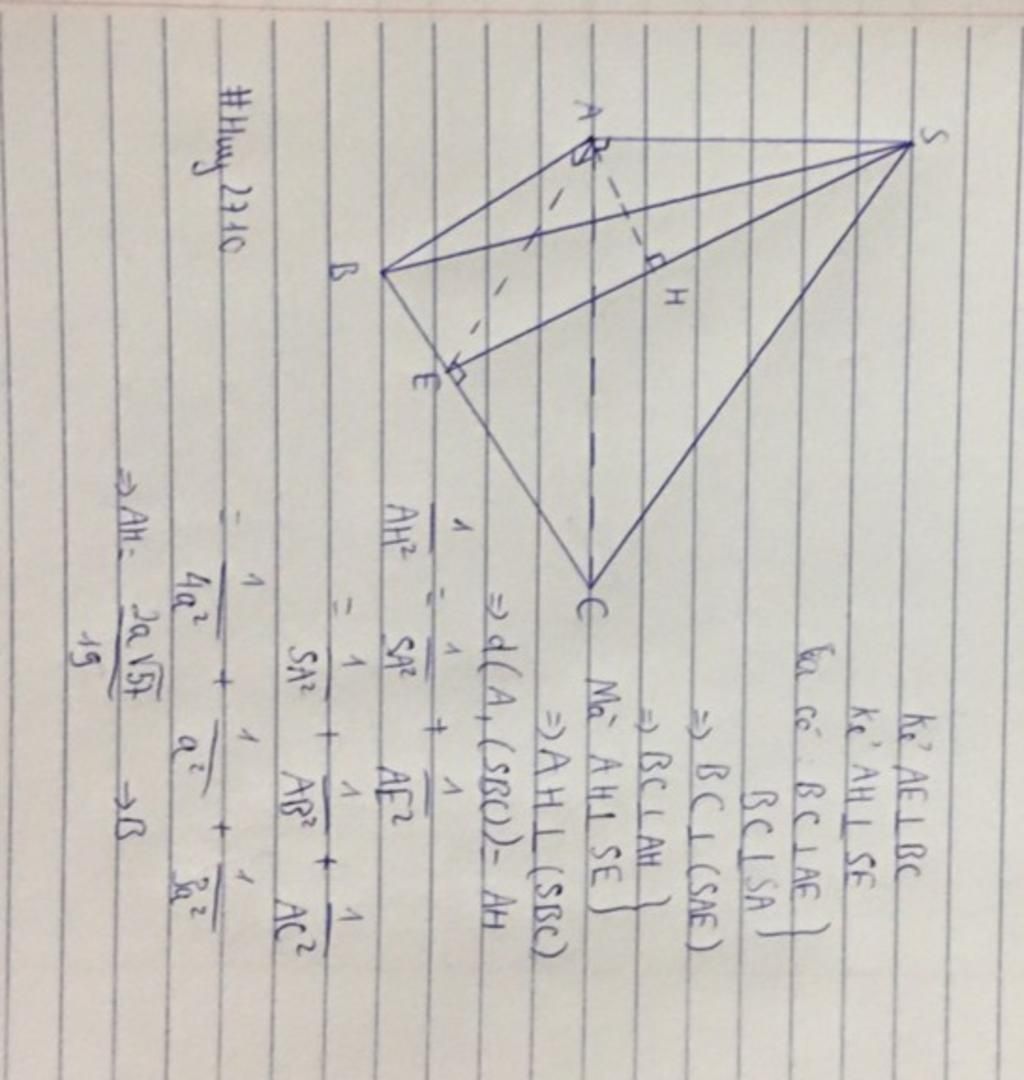 S
A
H
B
E
C
Kẻ AE⊥BC
Kẻ AH⊥SE
Ta có: BC⊥AE }
BC⊥SA }
=> BC⊥(SAE)
=> BC⊥AH }
Mà AH⊥SE }
=> AH⊥(SBC)
=> d(A,(SBC)) = AH
1/AH² = 1/SA² + 1/AE²
= 1/SA² + 1/AB² + 1/AC²
= 1/4a² + 1/a² + 1/3a²
=> AH = 2a√57/19 → B
#Huy2710